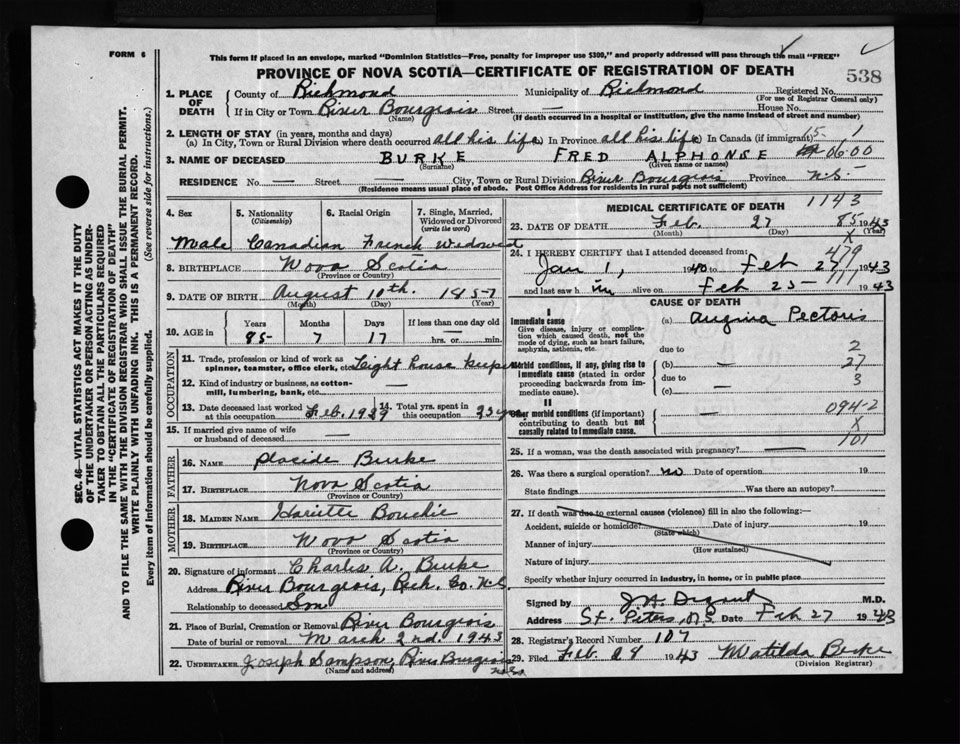 FORM 6
This form if placed in an envelope, marked "Dominion Statistics—Free, penalty for improper use $300," and properly addressed will pass through the mail "FREE"
PROVINCE OF NOVA SCOTIA—CERTIFICATE OF REGISTRATION OF DEATH
538
1. PLACE OF DEATH County of Richmond Municipality of Richmond Registered No.
(For use of Registrar General only)
If in City or Town River Bourgeois Street — House No.
(Name) (If death occurred in a hospital or institution, give the name instead of street and number)
2. LENGTH OF STAY (in years, months and days)
(a) In City, Town or Rural Division where death occurred all his life In Province all his life In Canada (if immigrant) 15 1
3. NAME OF DECEASED BURKE FRED ALPHONSE 0600
(Surname) (Given name or names)
RESIDENCE No. — Street — City, Town or Rural Division River Bourgeois Province N.S.
(Residence means usual place of abode. Post Office Address for residents in rural parts not sufficient)
4. Sex 5. Nationality (Citizenship) 6. Racial Origin 7. Single, Married, Widowed or Divorced (write the word)
Male Canadian French Widowed
8. BIRTHPLACE Nova Scotia
(Province or Country)
9. DATE OF BIRTH August 10th. 1857
(Month) (Day) (Year)
10. AGE in Years Months Days If less than one day old
85 7 17 — hrs. or — min.
OCCUPATION
11. Trade, profession or kind of work as spinner, teamster, office clerk, etc. Light house keeper
12. Kind of industry or business, as cotton-mill, lumbering, bank, etc. —
13. Date deceased last worked at this occupation Feb. 1939 14. Total yrs. spent in this occupation
15. If married give name of wife or husband of deceased —
FATHER
16. NAME Placide Burke
17. BIRTHPLACE Nova Scotia
(Province or Country)
MOTHER
18. MAIDEN NAME Hariette Bouchie
19. BIRTHPLACE Nova Scotia
(Province or Country)
20. Signature of informant Charles A. Burke
Address River Bourgeois, Rich. Co. N.S.
Relationship to deceased Son
21. Place of Burial, Cremation or Removal River Bourgeois
Date of burial or removal March 2nd. 1943
22. UNDERTAKER Joseph Sampson, River Bourgeois
(Name and address)
MEDICAL CERTIFICATE OF DEATH 1143
23. DATE OF DEATH Feb. 27 85 1943
(Month) (Day) (Year)
X
24. I HEREBY CERTIFY that I attended deceased from: 479
Jan 1, 1940 to Feb 27 1943
and last saw him alive on Feb 25 — 111 1943
CAUSE OF DEATH
I
Immediate cause (a) Angina Pectoris
Give disease, injury or complication which caused death, not the mode of dying, such as heart failure, asphyxia, asthenia, etc.
due to — 2
Morbid conditions, if any, giving rise to immediate cause (stated in order proceeding backwards from immediate cause).
(b) — 27
due to — 3
(c) —
II
Other morbid conditions (if important) contributing to death but not causally related to immediate cause.
— 094-2
X
101
25. If a woman, was the death associated with pregnancy? —
26. Was there a surgical operation? no Date of operation 19
State findings Was there an autopsy?
27. If death was due to external causes (violence) fill in also the following:—
Accident, suicide or homicide? Date of injury 19
(State which)
Manner of injury
(How sustained)
Nature of injury
Specify whether injury occurred in industry, in home, or in public place
Signed by M.D.
Address St. Peters, N.S. Date Feb 27 1943
28. Registrar's Record Number 107
29. Filed Feb. 28 1943 Matilda Burke
(Division Registrar)
SEC. 46—VITAL STATISTICS ACT MAKES IT THE DUTY
OF THE UNDERTAKER OR PERSON ACTING AS UNDER-
TAKER TO OBTAIN ALL THE PARTICULARS REQUIRED
IN THE "CERTIFICATE OF REGISTRATION OF DEATH"
AND TO FILE THE SAME WITH THE DIVISION REGISTRAR WHO SHALL ISSUE THE BURIAL PERMIT.
WRITE PLAINLY WITH UNFADING INK. THIS IS A PERMANENT RECORD.
Every item of information should be carefully supplied. (See reverse side for instructions.)